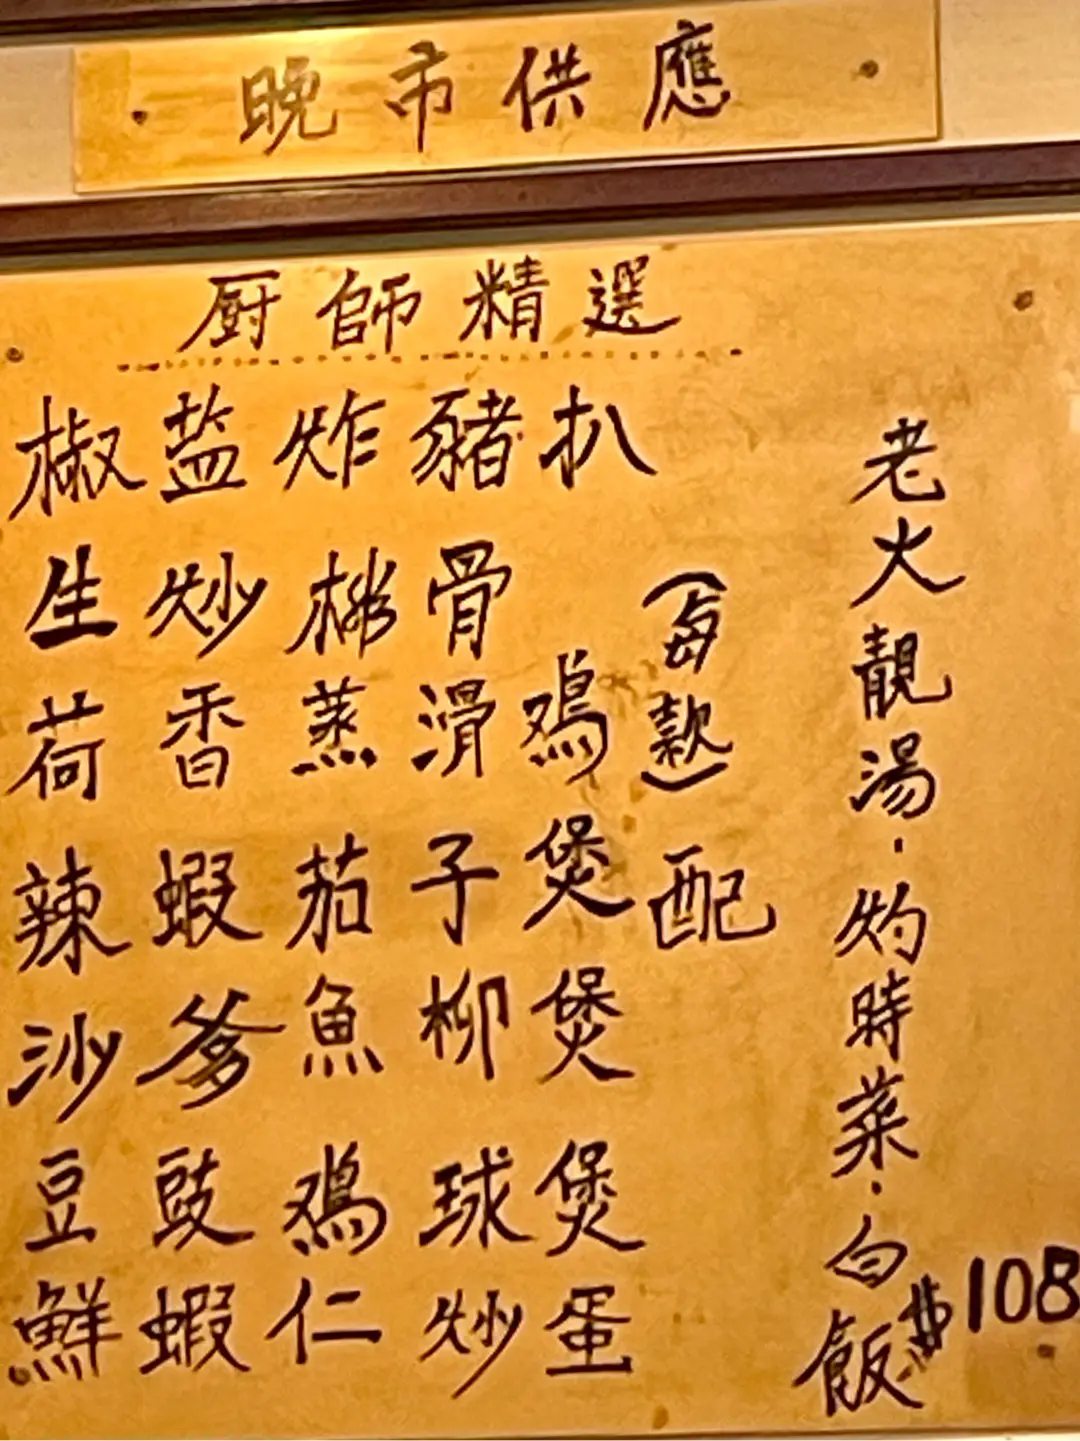 晚市供應
厨師精選
椒盐炸豬扒
生炒排骨
荷香蒸滑鷄
辣蝦茄子煲
沙爹魚柳煲
豆豉鷄球煲
鮮蝦仁炒蛋
(每款)配
老火靚湯·灼時菜·白飯$108